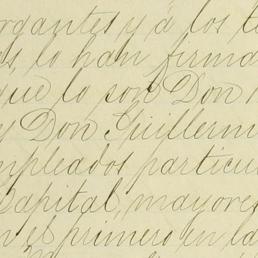 organtes y á los te
os, lo han firma
que lo son Don
y Don Guillerm
mpleados particu
Capital, mayores
n el primero en la